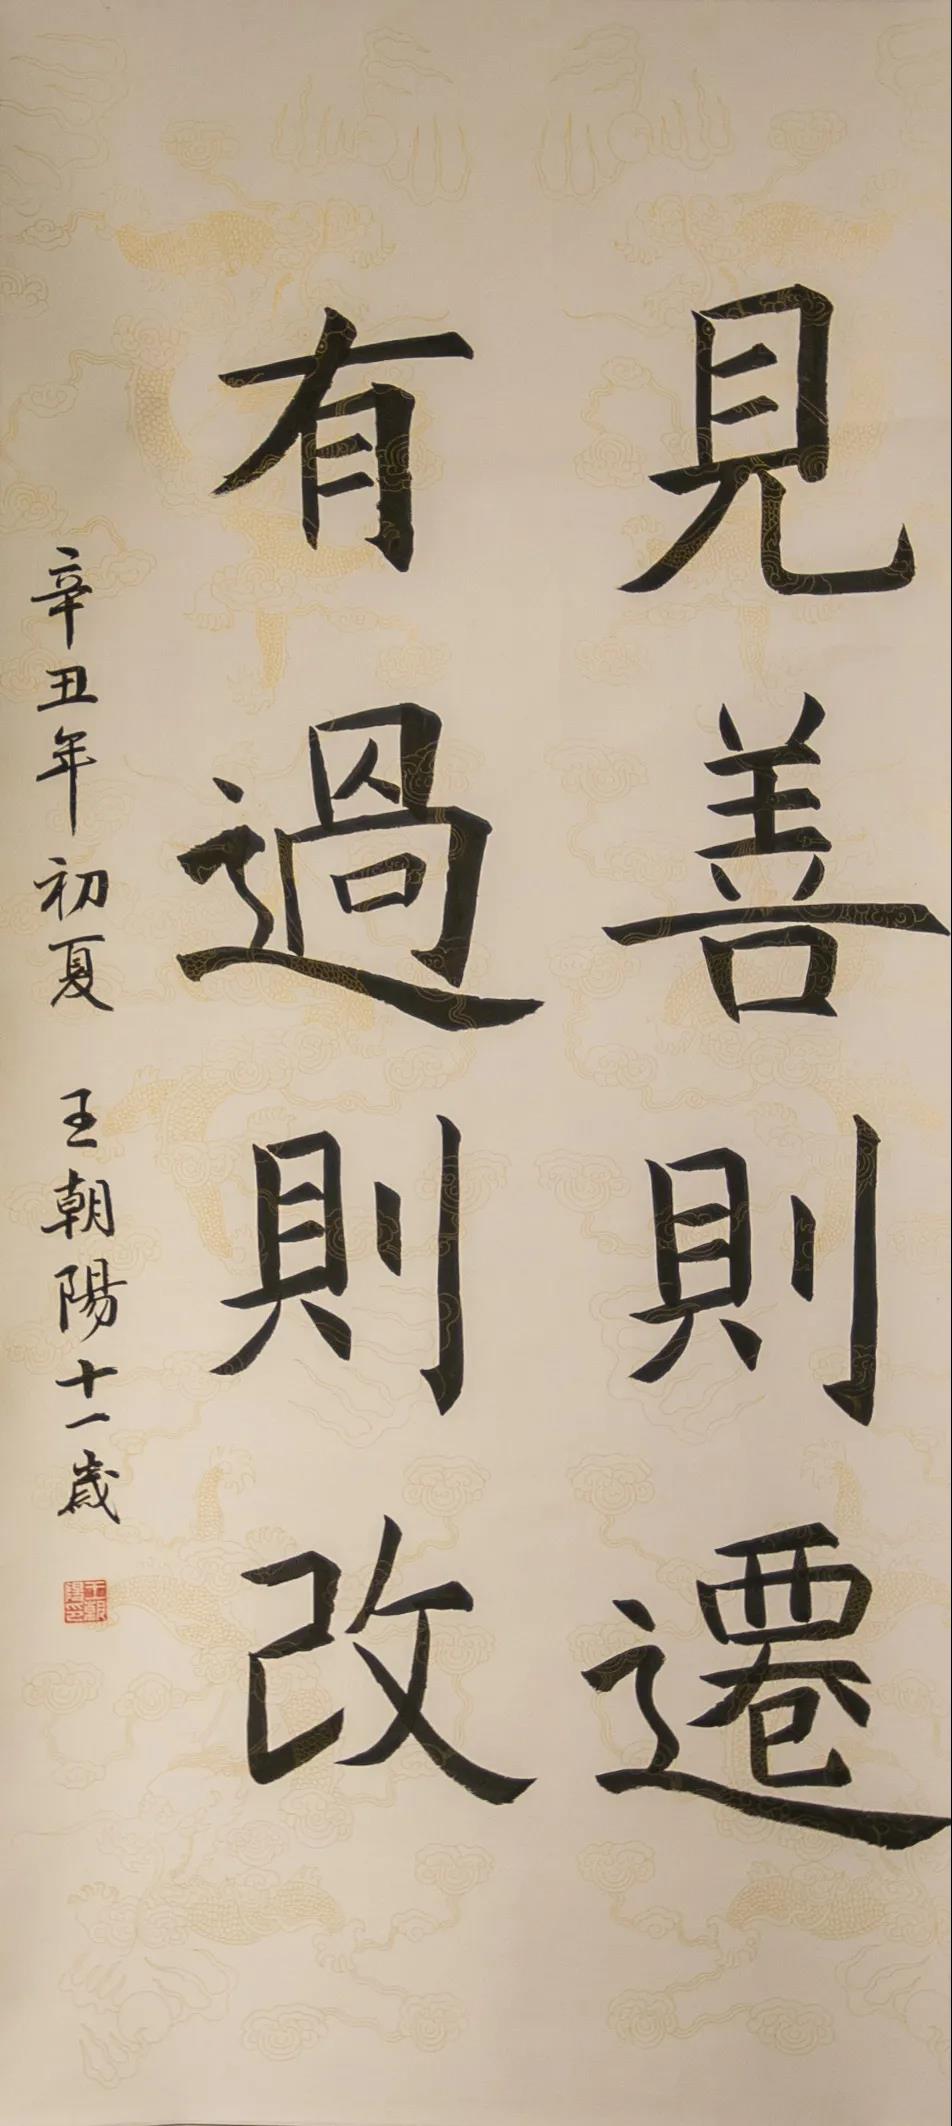 見善則遷
有過則改
辛丑年初夏 王朝陽十一歲
王朝陽印